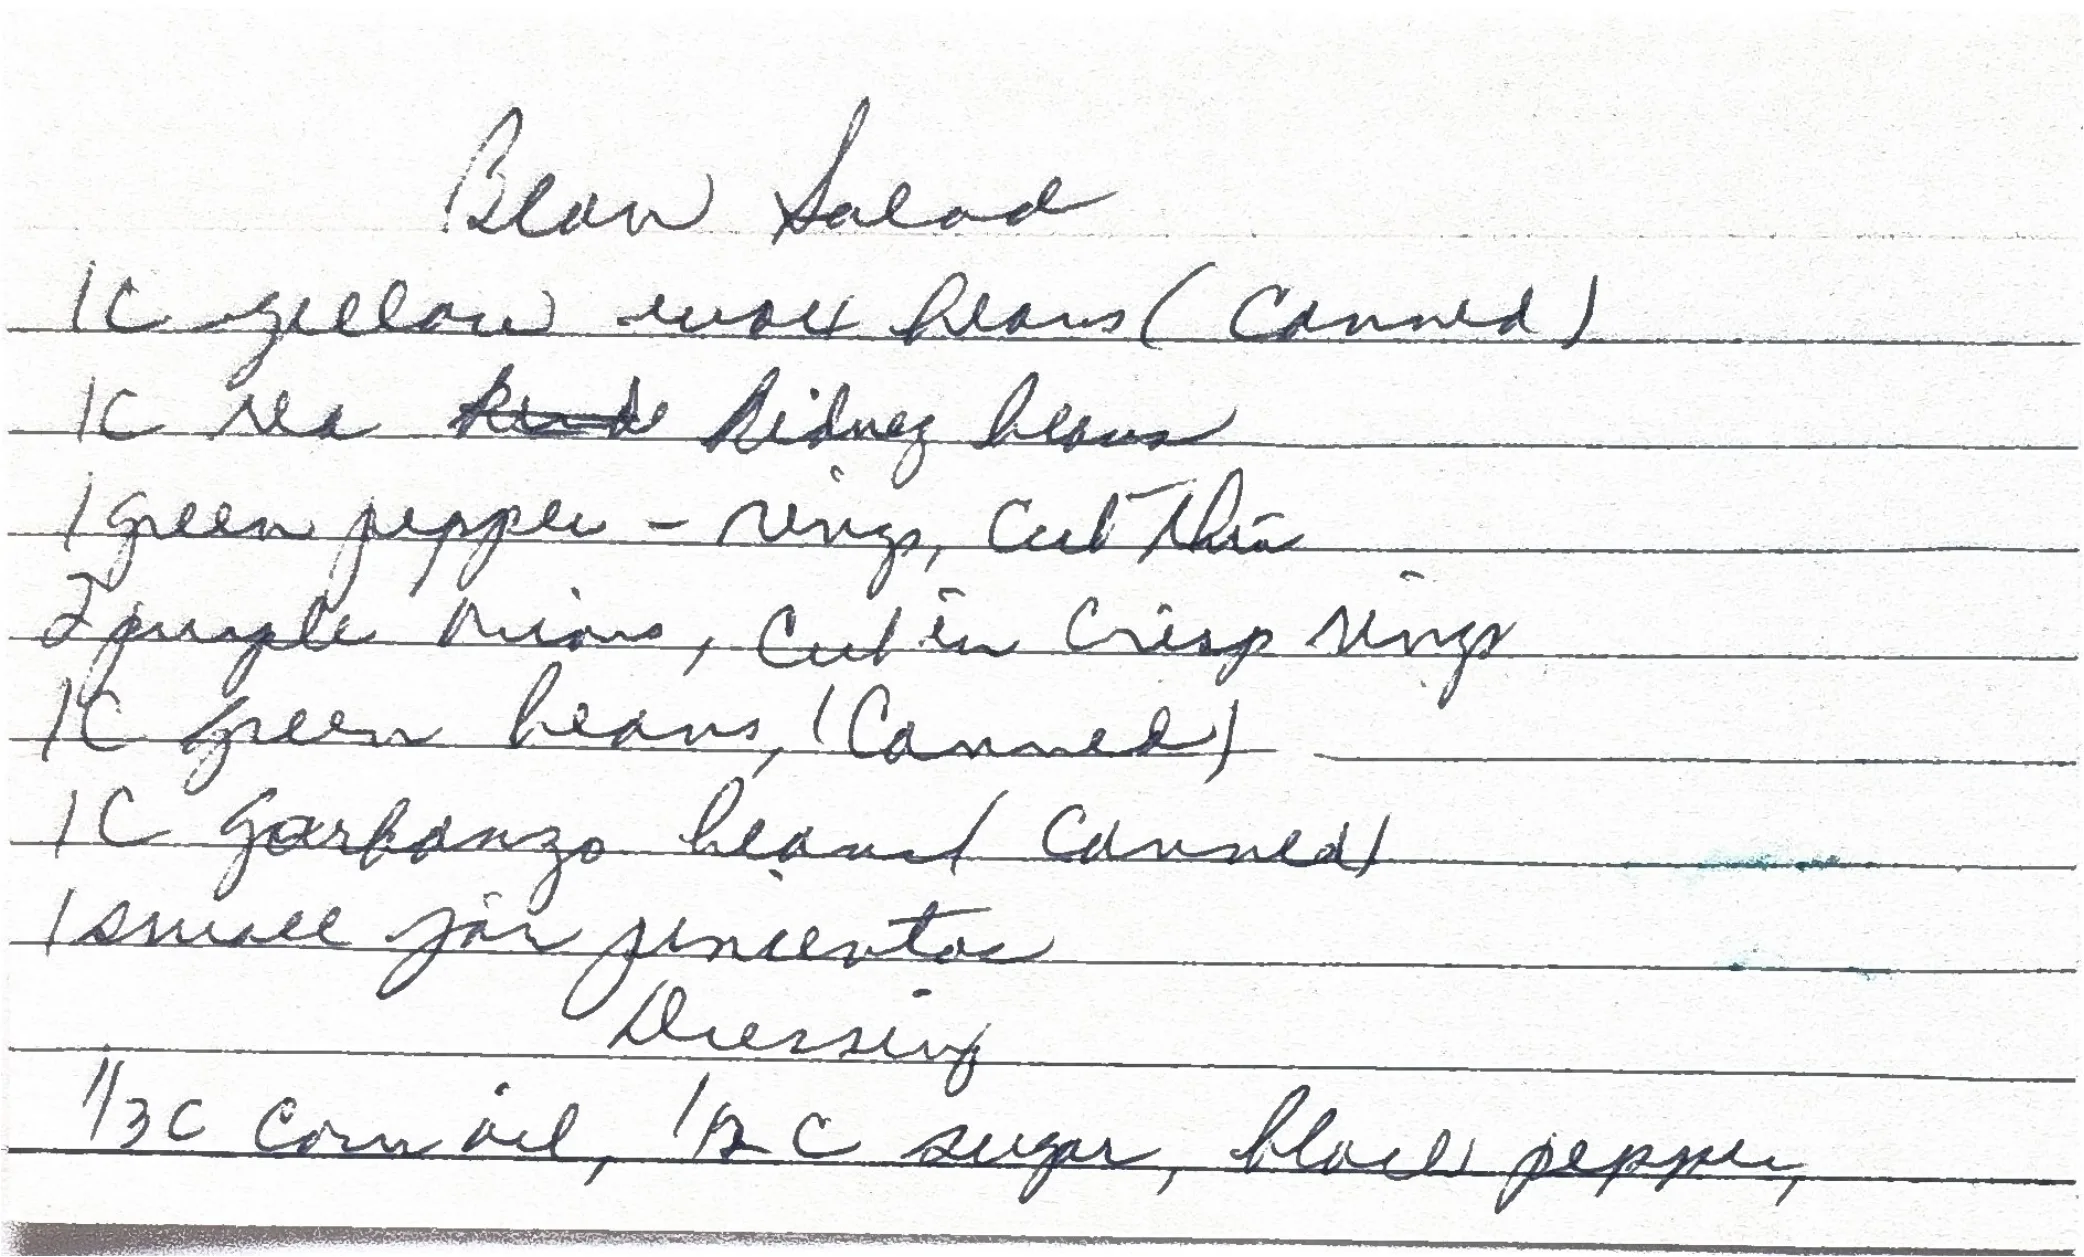 Bean Salad
1C yellow wax beans (Canned)
1C red kidney beans
1 green pepper - rings, Cut thin
2 purple onions, Cut in Crisp rings
1C green beans, (Canned)
1C garbanzo beans (Canned)
1 small jar pimentos
Dressing
1/3 C Corn oil, 1/2 C sugar, black pepper,